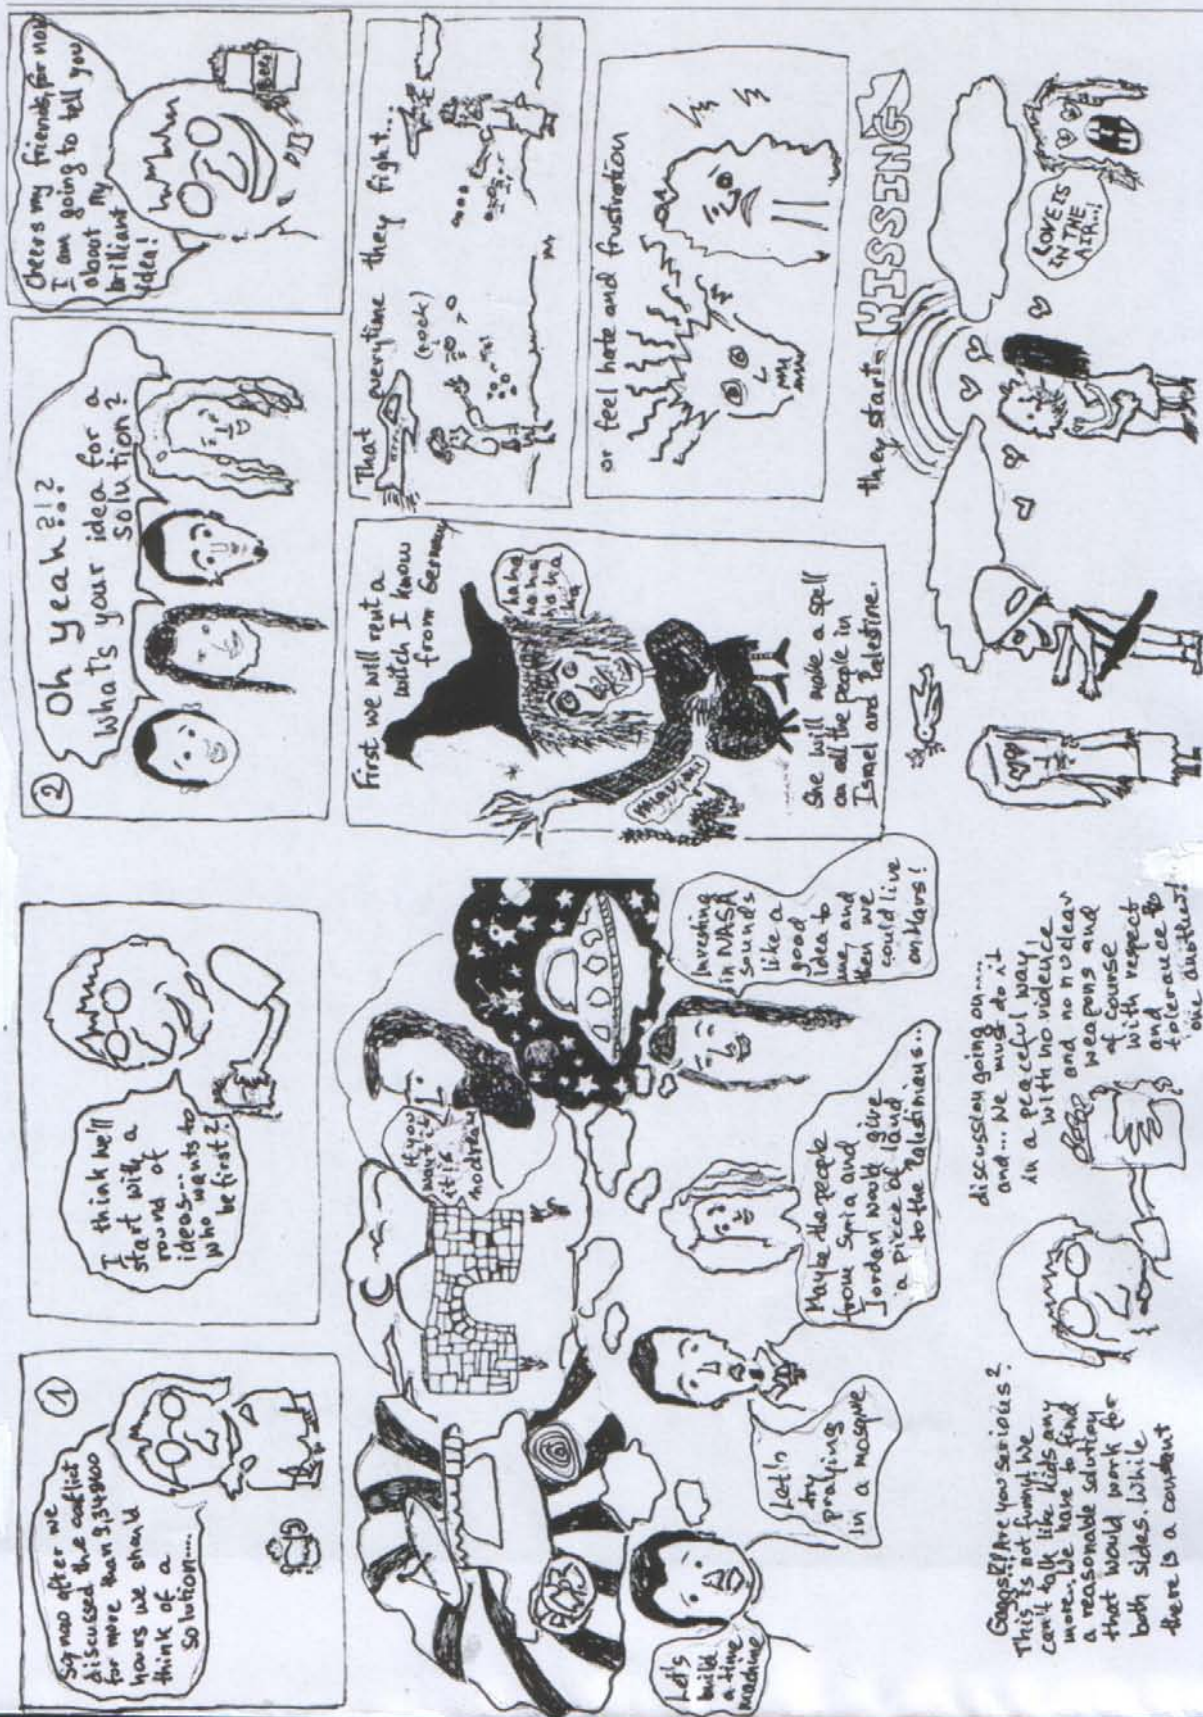 1
So, now after we
discussed the conflict
for more than 9,348400
hours we should
think of a
solution.....
I think we'll
start with a
round of
ideas.... who wants to
be first?
Let's
build
a time
machine
Let's
try
praying
in a mosque
If you
want it
it is
no dream
Maybe the people
from Syria and
Jordan would give
a piece of land
to the Palestinians...
Investing
in NASA
sounds
like a
good
idea to
me, and
then we
could live
on Mars!
This is not funny! We
can't talk like kids any
more. We have to find
a reasonable solution,
that would work for
both sides. While
there is a constant
discussion going on.....
and.... We must do it
in a peaceful way,
with no violence
and no nuclear
weapons and
of course
with respect
and
tolerance to
one another!
2
Oh yeah?!?
What's your idea for a
solution?
Cheers my friends, for now
I am going to tell you
about my
brilliant
idea!
Beer
First we will rent a
witch I know
from Germany
ha ha
ha ha
ha ha
ha
She will make a spell
on all the people in
Israel and Palestine.
That everytime they fight...
(rock)
or feel hate and frustration
they start KISSING
LOVE IS
IN THE
AIR...!